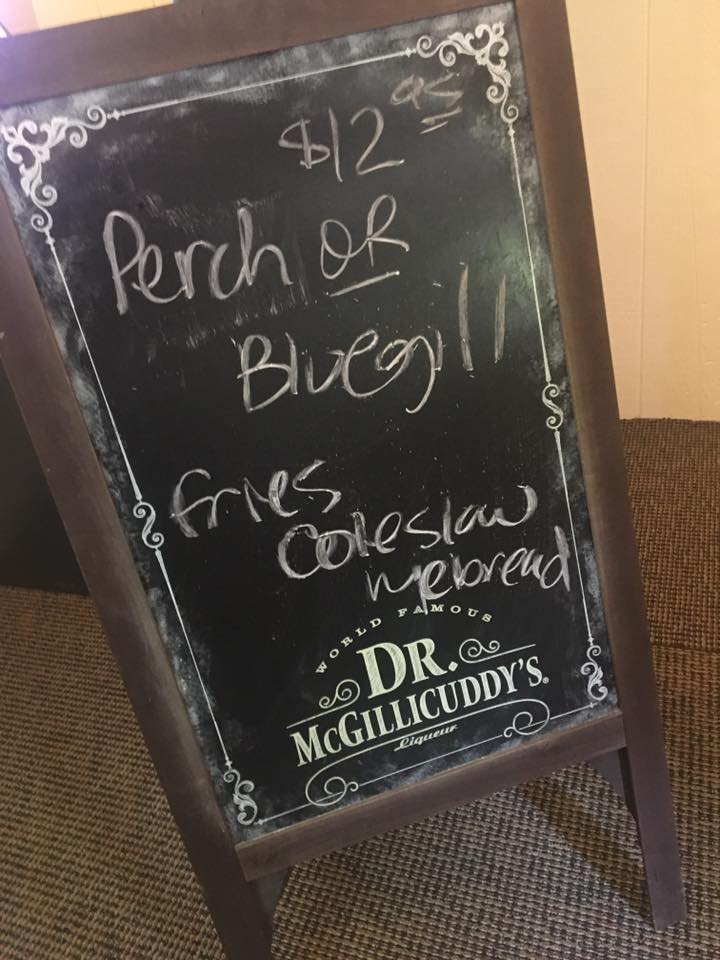 $12 95
Perch OR
Bluegill
fries
Coleslaw
ryebread
WORLD FAMOUS
DR.
McGILLICUDDY'S®
Liqueur